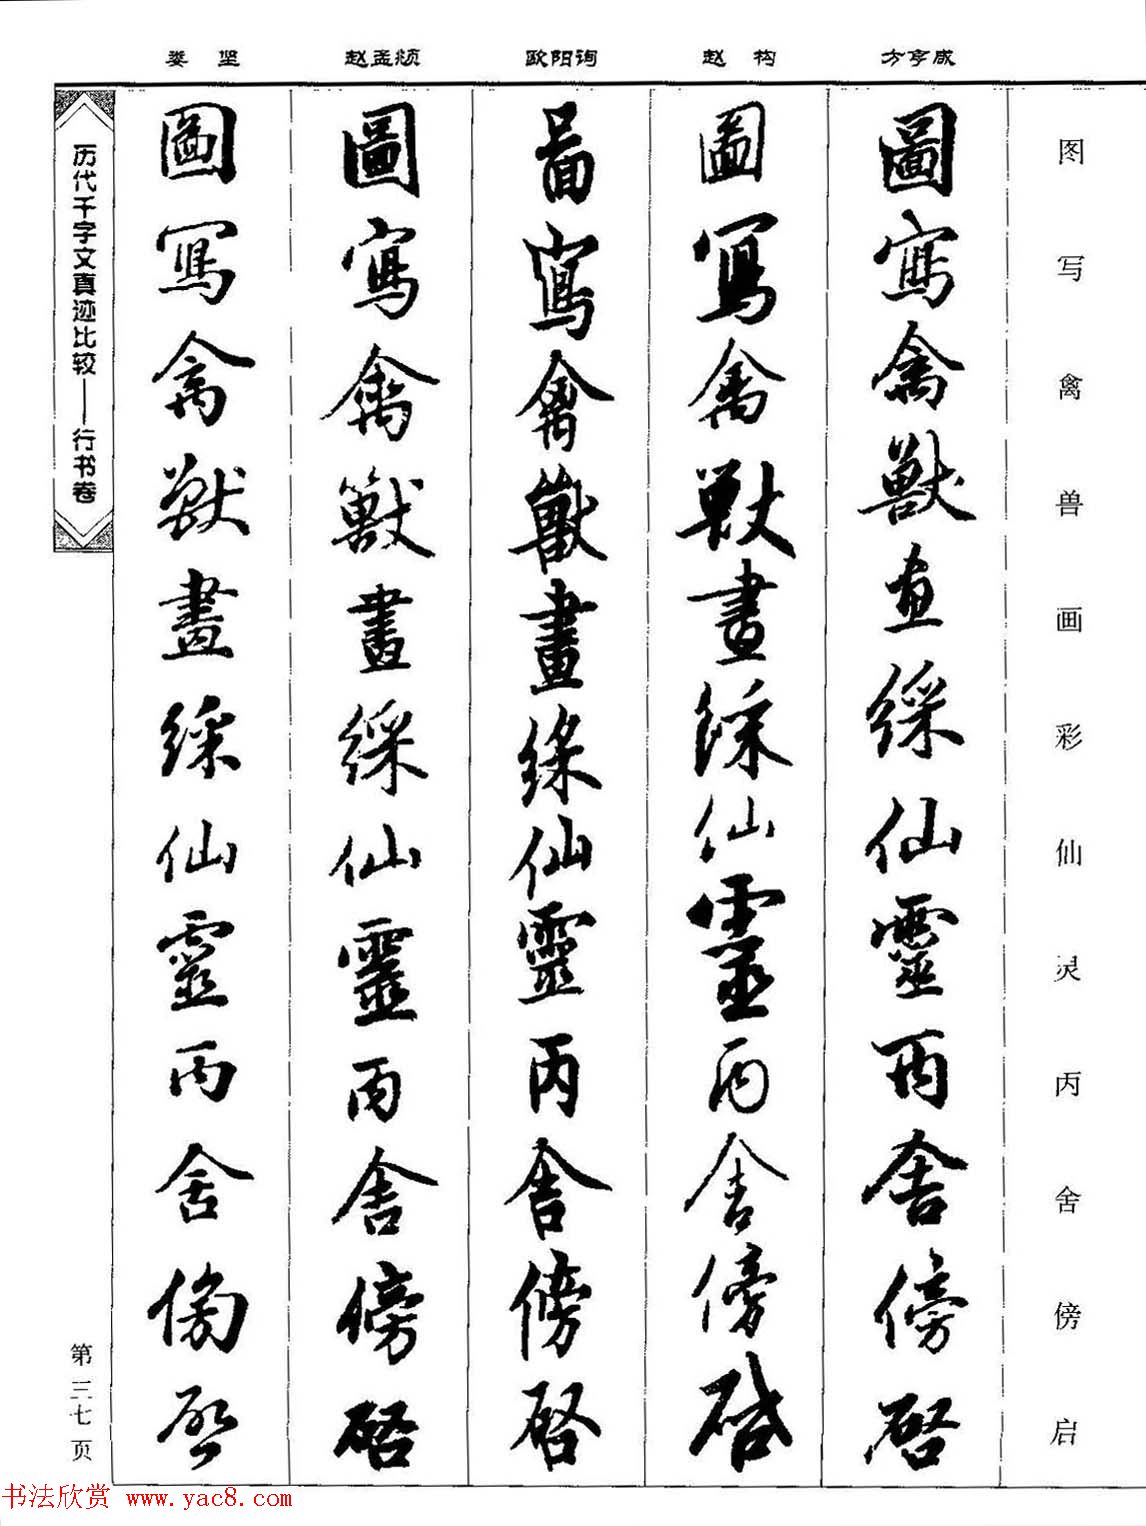 娄 坚 赵孟頫 欧阳询 赵 构 方亨咸
图写禽兽画彩仙灵丙舍傍启
圖寫禽獸畫綵仙靈丙舍傍啓
圖寫禽獸畫綵仙靈丙舍傍啓
圖寫禽獸畫綵仙靈丙舍傍啓
圖寫禽獸畫綵仙靈丙舍傍啓
圖寫禽獸畫綵仙靈丙舍傍啓
历代千字文真迹比较——行书卷
第三七页
书法欣赏 www.yac8.com